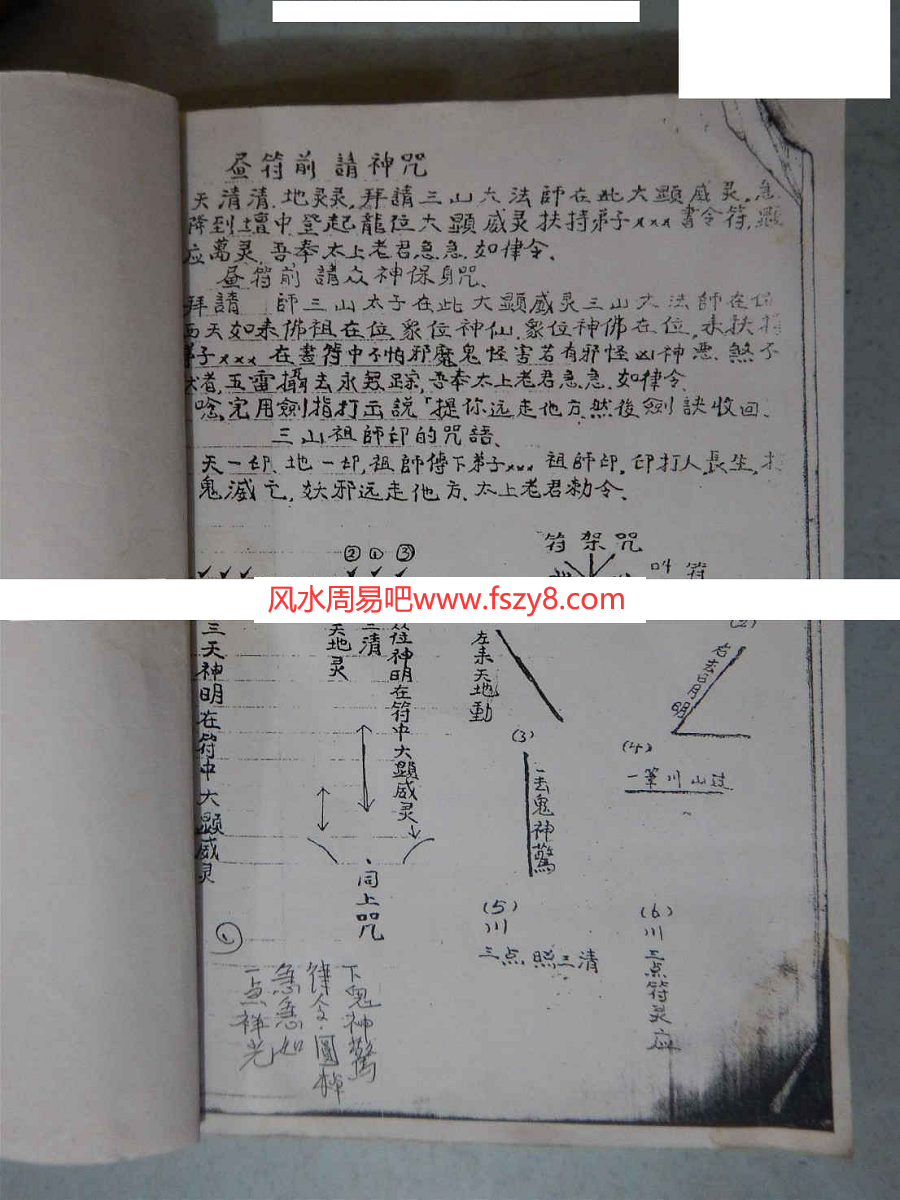 昼符前請神咒
天清清.地灵灵,拜請三山大法師在此大顯威灵,急
降到壇中登起龍位大顯威灵扶持弟子xxx書令符,顯
应萬灵.吾奉太上老君急急.如律令.
昼符前請众神保身咒、
拜請 師三山太子在此大顯威灵三山大法師在
西天如来佛祖在位象位神仙.象位神佛在位,未扶持
弟子xxx在畫符中不怕邪魔鬼怪害若有邪怪凶神悪.煞不
五雷攝去永無踪,吾奉太上老君急急.如律令
唸完用劍指打出説「提你远走他方然後劍訣收回.
三山祖師印的咒語、
天一印.地一印,祖師傳下弟子xxx祖師印.印打人長生,打
鬼滅亡.妖邪远走他方.太上老君勅令、
符架咒
② ① ③
叫符
风水周易吧www.fszy8.com
三天神明在符中大顯威灵
天地灵
三清
位神明在符中大顯威灵
同上咒
左来天地動
(2)
右去日月明
(3)
一去鬼神驚
(4)
一筆川山过
(5)
川
三点.照三清
(6)
川
三点符灵应
①
下鬼神驚
律令.圓
急急如
一点祥光